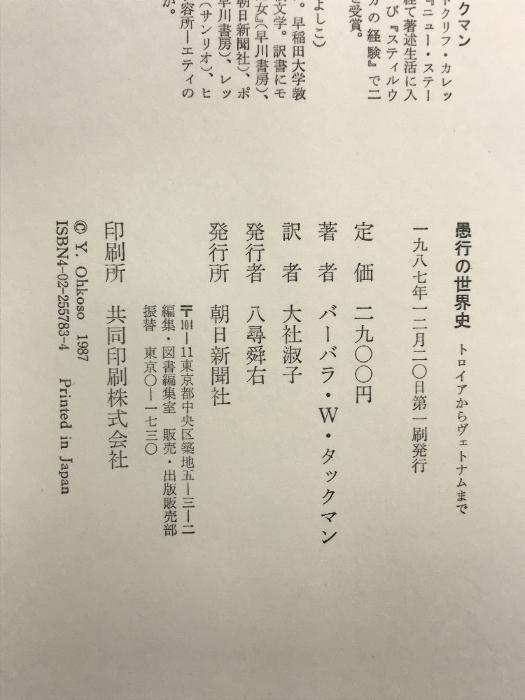 クマン
トクリフ・カレッ
『ニュー・ステー
経て著述生活に入
び『スティルウ
カの経験』で二
を受賞。
よしこ)
。早稲田大学教
文学。訳書にモ
女』(早川書房)、
朝日新聞社)、ポ
(サンリオ)、ヒ
早川書房)、レッ
容所―エティの
か。
愚行の世界史 トロイアからヴェトナムまで
一九八七年一二月二〇日第一刷発行
定価 二九〇〇円
著者 バーバラ・W・タックマン
訳者 大社淑子
発行者 八尋舜右
発行所 朝日新聞社
〒104―11東京都中央区築地五―三―二
編集・図書編集室 販売・出版販売部
振替 東京〇―一七三〇
印刷所 共同印刷株式会社
© Y. Ohkoso 1987
ISBN4-02-255783-4 Printed in Japan